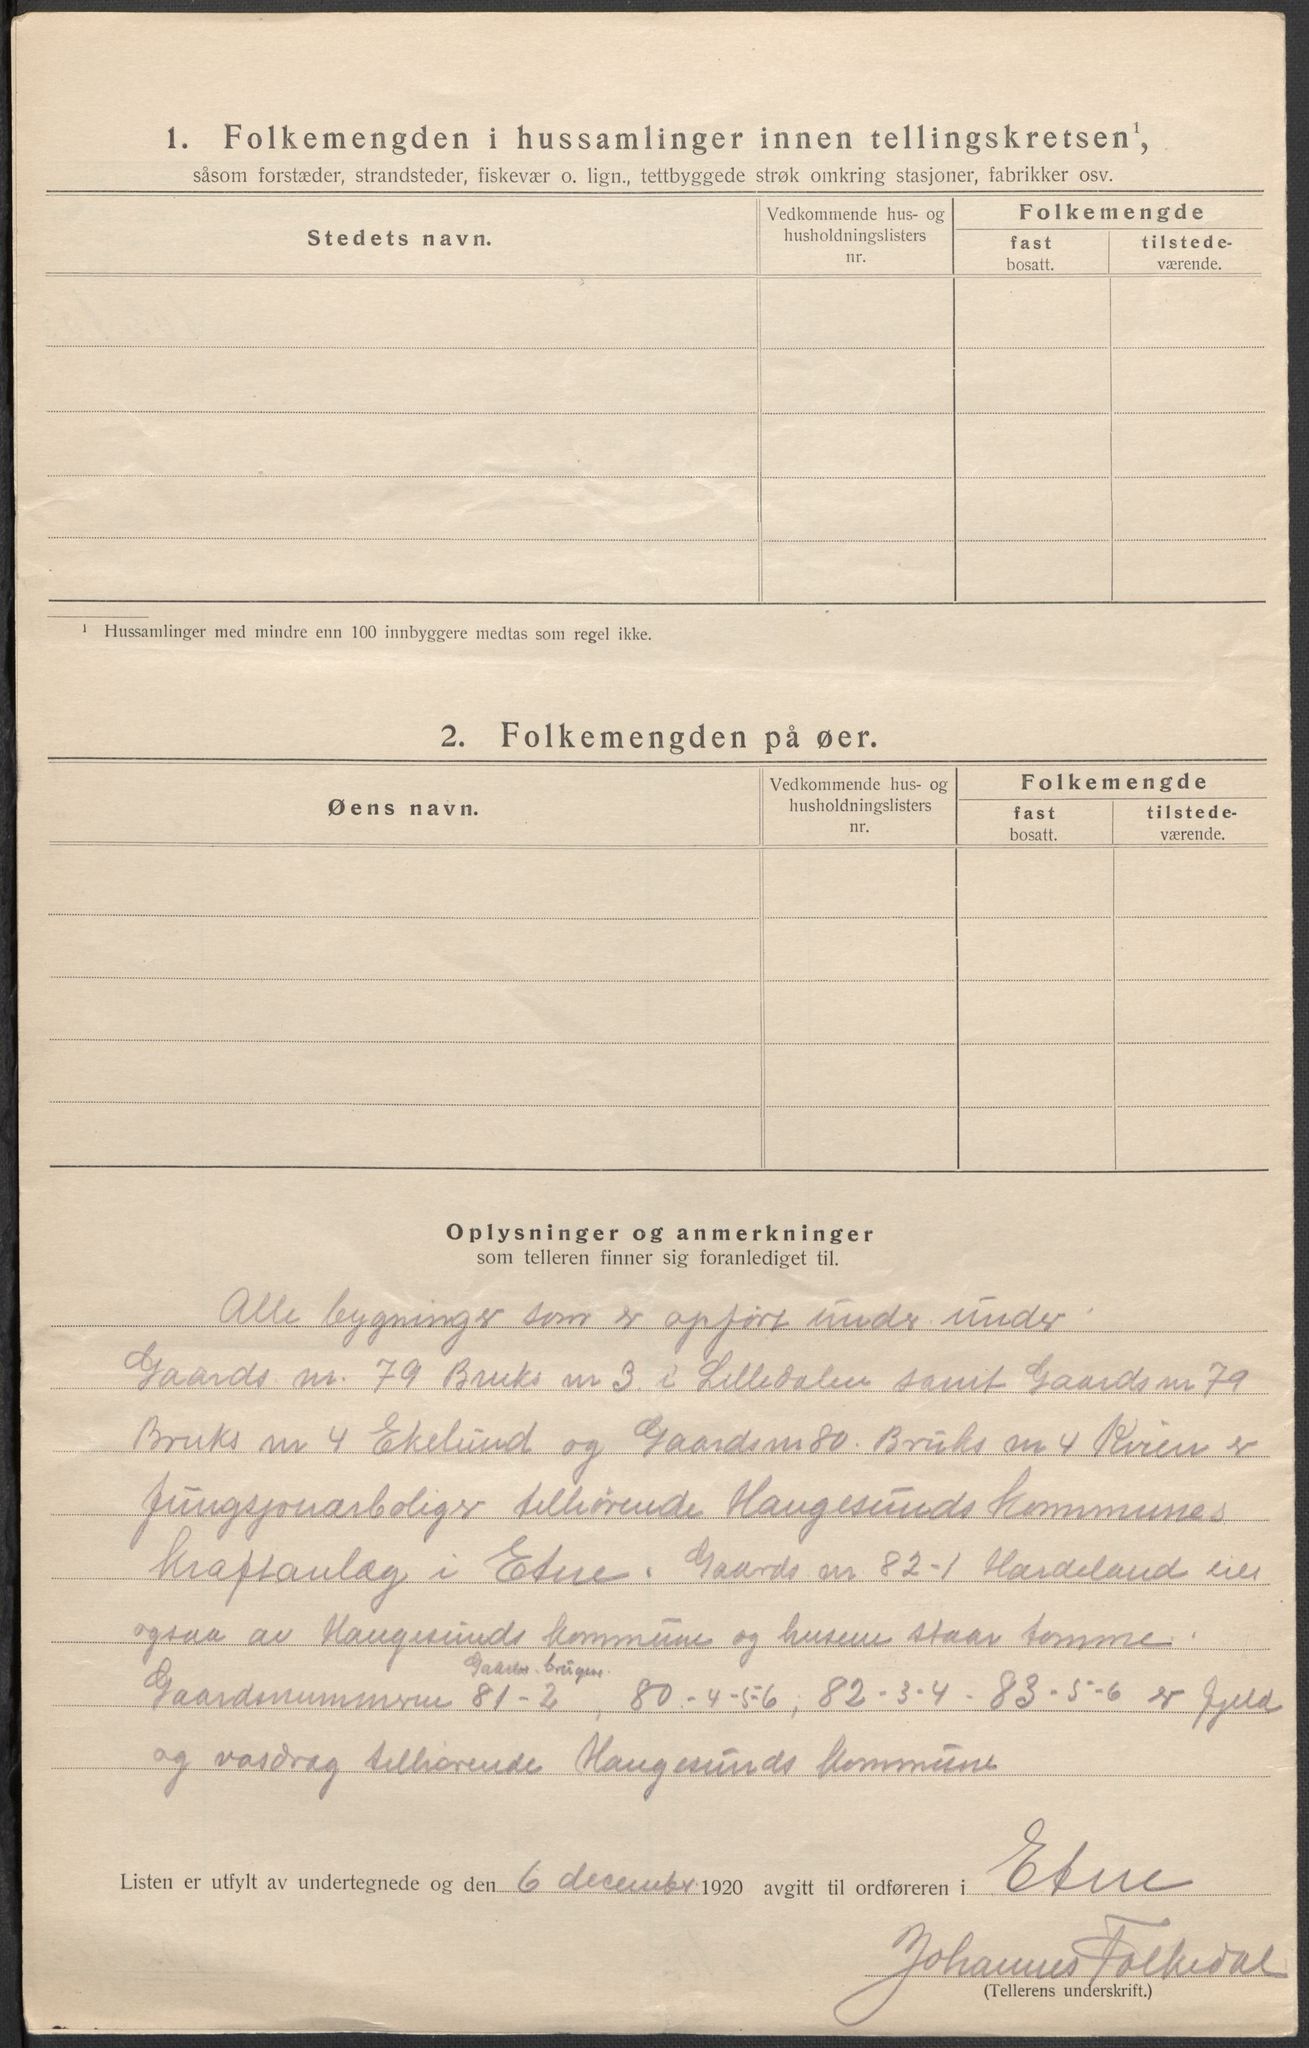 1. Folkemengden i hussamlinger innen tellingskretsen¹,
såsom forstæder, strandsteder, fiskevær o. lign., tettbyggede strøk omkring stasjoner, fabrikker osv.
Stedets navn.
Vedkommende hus- og
husholdningslisters
nr.
Folkemengde
fast
bosatt.
tilstede-
værende.
¹ Hussamlinger med mindre enn 100 innbyggere medtas som regel ikke.
2. Folkemengden på øer.
Øens navn.
Vedkommende hus- og
husholdningslisters
nr.
Folkemengde
fast
bosatt.
tilstede-
værende.
Oplysninger og anmerkninger
som telleren finner sig foranlediget til.
Alle bygninger som er opført under under
Gaards nr. 79 Bruks nr 3 i Lilledalen samt Gaards nr 79
Bruks nr 4 Ekelund og Gaards nr 80. Bruks nr 4 Kvien er
fungsjonærboliger tilhørende Haugesunds kommunes
kraftanlæg i Etne. Gaards nr 82-1 Hardeland eies
ogsaa av Haugesunds kommune og husene staar tomme.
Gaards. brugsnr.
Gaardsnummerne 81-2, 80-4-5-6, 82-3-4-83-5-6 er fjeld
og vasdrag tilhørende Haugesunds kommune
Listen er utfylt av undertegnede og den 6 december 1920 avgitt til ordføreren i Etne
Johannes Folkedal
(Tellerens underskrift.)